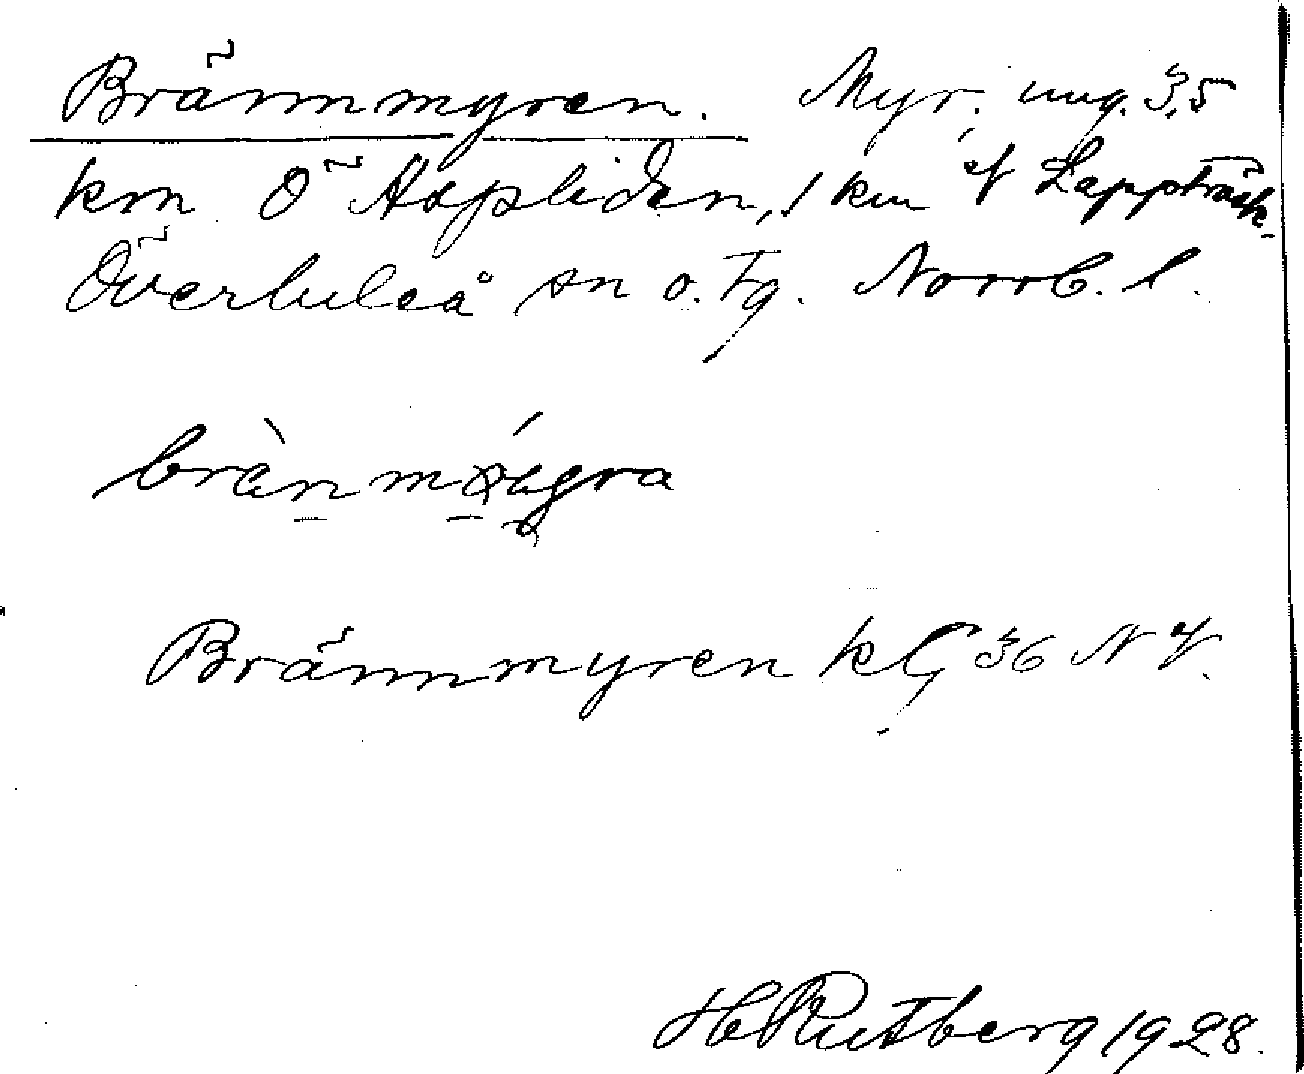 Brännmyren. Myr, ung. 3,5
km Ö Aspliden, 1 km V Lappträsk.
Överluleå sn o. tg. Norrb. l.
Brännmyren kG 36 NV.
H Rutberg 1928.